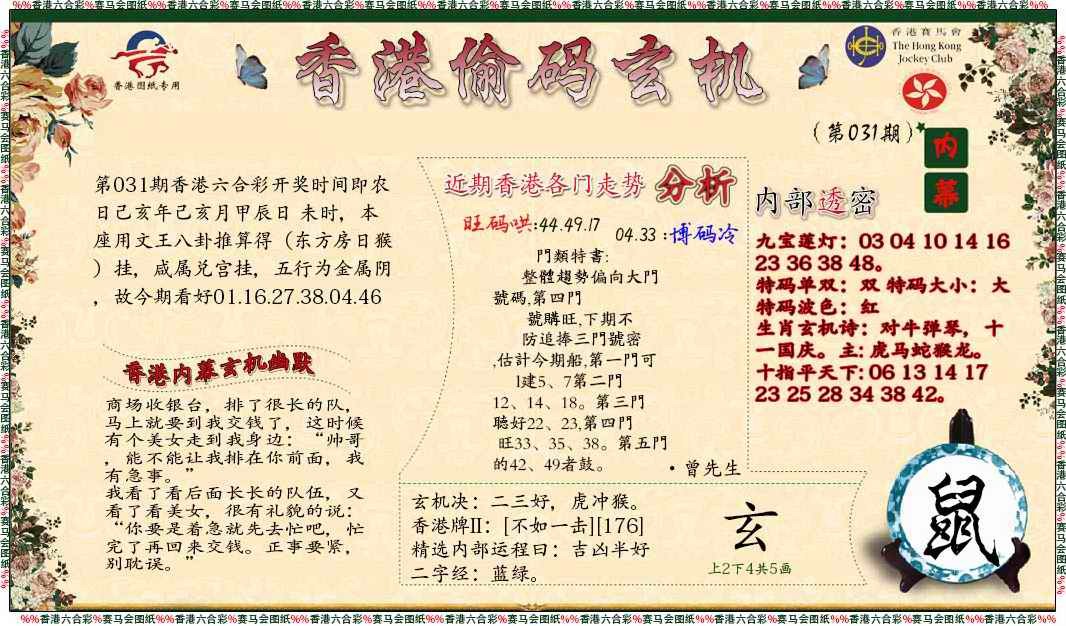 %%香港六合彩%赛马会图纸%%香港六合彩%赛马会图纸%%香港六合彩%赛马会图纸%%香港六合彩%赛马会图纸%%香港六合彩%赛马会图纸%%香港六合彩%赛马会图纸%%香港六合彩%赛马会图纸%%香港六合彩%%
香港图纸专用
香港偷码玄机
香港賽馬會
The Hong Kong
Jockey Club
(第031期)
内
幕
第031期香港六合彩开奖时间即农
日己亥年己亥月甲辰日 未时，本
座用文王八卦推算得（东方房日猴
）挂，咸属兑宫挂，五行为金属阴
，故今期看好01.16.27.38.04.46
香港内幕玄机幽默
商场收银台，排了很长的队，
马上就要到我交钱了，这时候
有个美女走到我身边：“帅哥
，能不能让我排在你前面，我
有急事。”
我看了看后面长长的队伍，又
看了看美女，很有礼貌的说：
“你要是着急就先去忙吧，忙
完了再回来交钱。正事要紧，
别耽误。”
近期香港各门走势 分析
旺码哄:44.49.17
04.33 :博码冷
門類特書:
整體趨勢偏向大門
號碼,第四門
號購旺,下期不
防追捧三門號密
,估計今期船,第一門可
1建5、7第二門
12、14、18。第三門
聽好22、23,第四門
旺33、35、38。第五門
的42、49者鼓。
·曾先生
内部透密
九宝莲灯：03 04 10 14 16
23 36 38 48。
特码单双：双 特码大小：大
特码波色：红
生肖玄机诗：对牛弹琴，十
一国庆。主: 虎马蛇猴龙。
十指平天下: 06 13 14 17
23 25 28 34 38 42。
玄机决：二三好，虎冲猴。
香港牌II：[不如一击][176]
精选内部运程曰：吉凶半好
二字经：蓝绿。
玄
上2下4共5画
鼠
%%香港六合彩%赛马会图纸%%香港六合彩%赛马会图纸%%香港六合彩%赛马会图纸%%香港六合彩%赛马会图纸%%香港六合彩%赛马会图纸%%香港六合彩%赛马会图纸%%香港六合彩%赛马会图纸%%香港六合彩%%